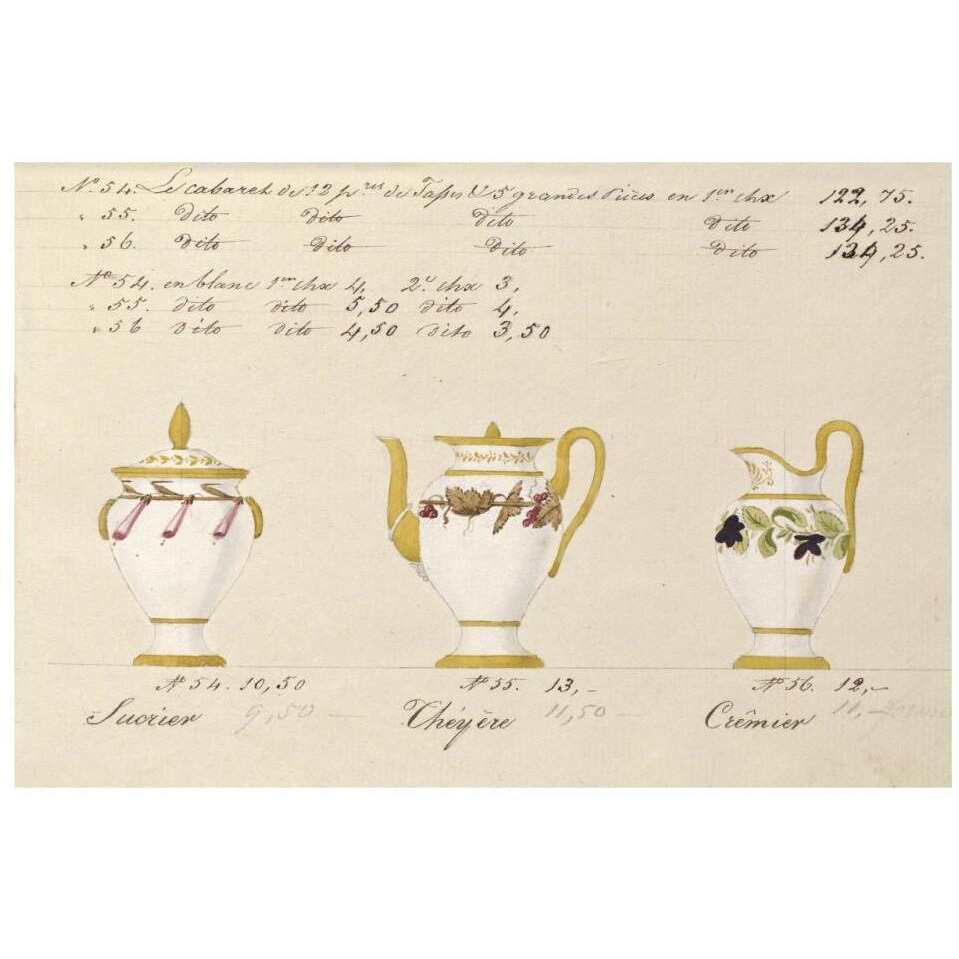 No. 54. Le cabaret de 12 pres de Tasses & 5 grandes Pièces en 1er chx 122,75.
" 55. Dito Dito Dito Dito 134,25.
" 56. Dito Dito Dito Dito 134,25.
No. 54. en blanc 1er chx 4, 2e chx 3,
" 55. dito dito 5,50 dito 4,
" 56 dito dito 4,50 dito 3,50
No 54. 10,50 No 55. 13,- No 56. 12,-
Sucrier 9,50 - Théyère 11,50 - Crêmier 11,-